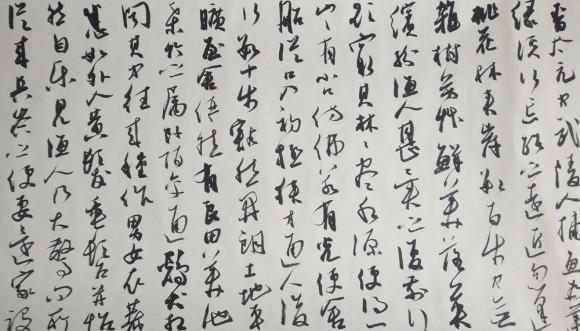 晉太元中武陵人捕魚為業
緣溪行忘路之遠近忽逢
桃花林夾岸數百步中無
雜樹芳草鮮美落英
繽紛漁人甚異之復前行
欲窮其林林盡水源便得一
山山有小口仿佛若有光便舍
船從口入初極狹才通人復
行數十步豁然開朗土地平
曠屋舍儼然有良田美池
桑竹之屬阡陌交通鷄犬相
聞其中往來種作男女衣著
悉如外人黃髮垂髫並怡
然自樂見漁人乃大驚問所
從來具答之便要還家設